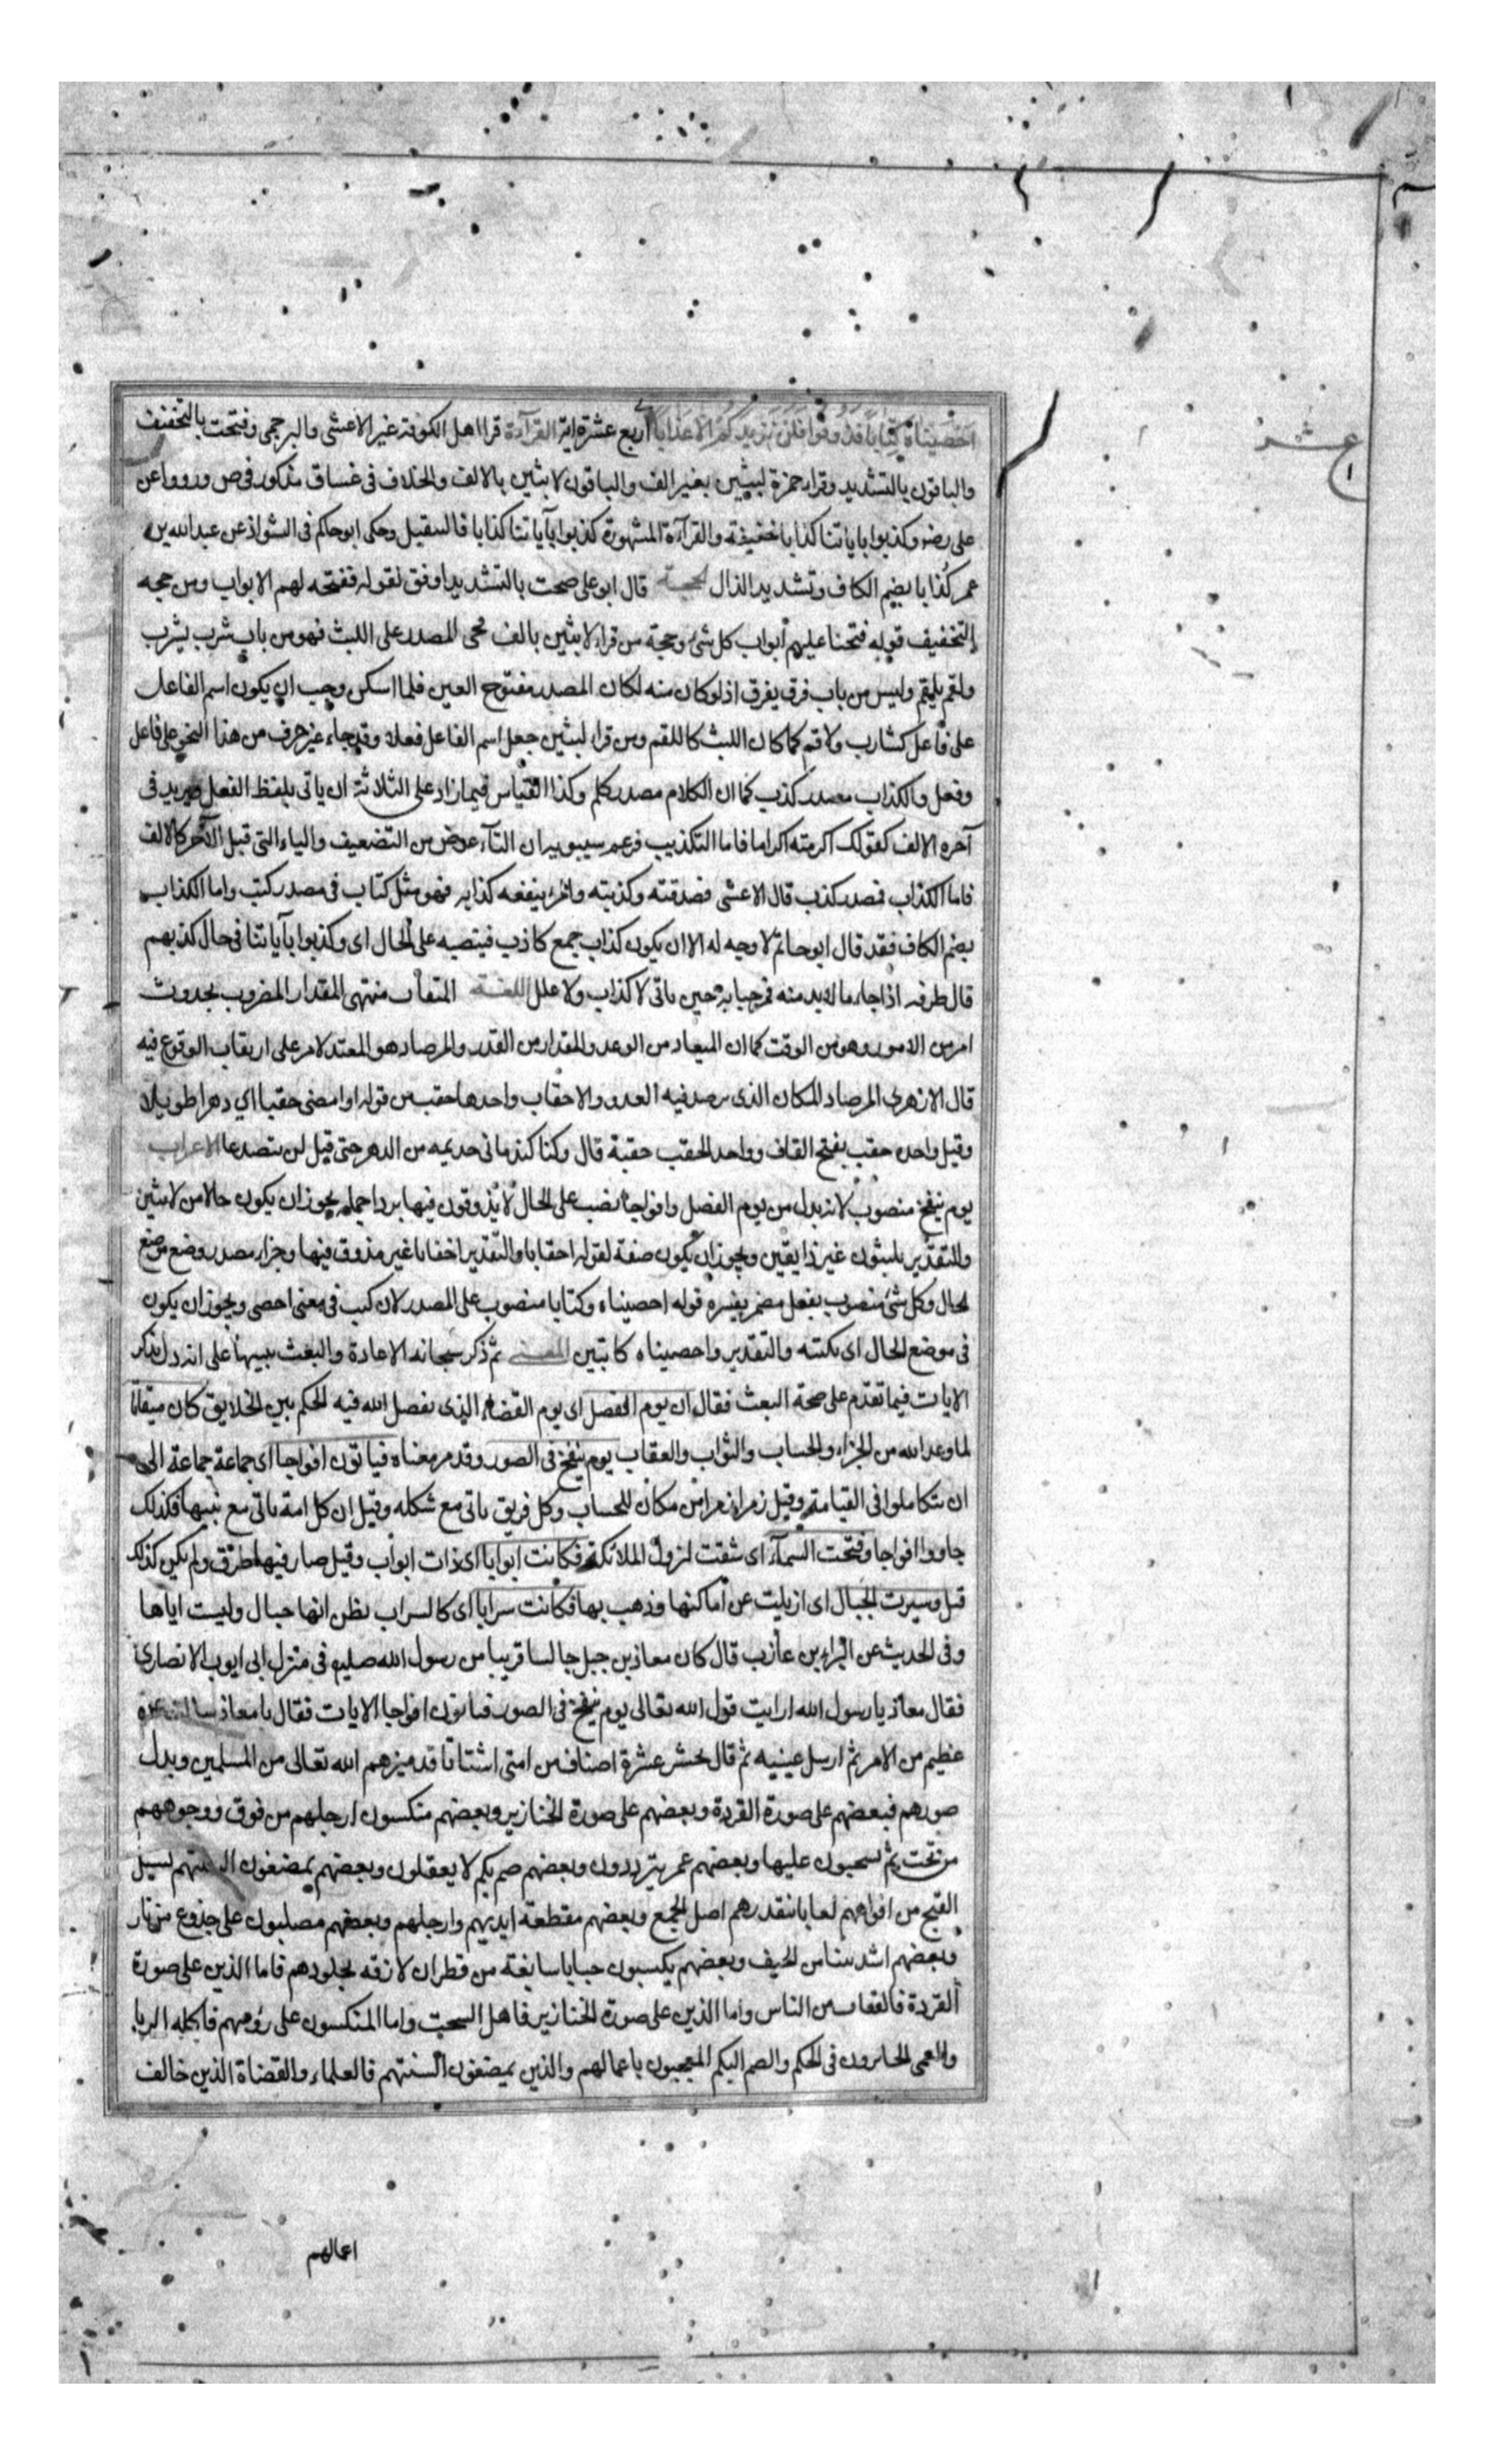 احصيناه كتابا فذوقوا فلن نزيدكم الا عذابا اربع عشرة اية القرآءة قرا اهل الكوفة غير الاعشى والبرجمى وفتحت بالتخفيف
عشر
والباقون بالتشديد وقراء حمزة لبثين بغير الف والباقون لابثين بالالف والخلاف فى غساق مذكور فى ص ورووا عن
على رضه وكذبوا باياتنا كذابا خفيفة والقرآءة المشهورة كذبوا بآياتنا كذابا قال سقيل وحكى ابو حاكم فى الشواذ عن عبد الله بن
عمر كُذابا بضم الكاف وتشديد الذال الحجة قال ابو على صحت بالتشديد اوفق لقوله مفتحة لهم الابواب ومن حجه
التخفيف قوله فتحنا عليهم أبواب كل شئ وحجة من قراء لابثين بالف مجى المصدر على اللبث فهو من باب شرب يشرب
ولقم يلقم وليس من باب فرق يفرق اذ لو كان منه لكان المصدر مفتوح العين فلما اسكن وجب ان يكون اسم الفاعل
على فاعل كشارب ولاقم كما كان اللبث كاللقم ومن قراء لبثين جعل اسم الفاعل فعلا وقد جاء غير حرف من هذا النحو على فاعل
وفعل والكذاب مصدر كذب كما ان الكلام مصدر كلم وكذا القياس فيما زاد على الثلاثة ان ياتى بلفظ الفعل ويزيد فى
آخره الالف كقولك اكرمته اكراما فاما التكذيب فزعم سيبويه ان التآء عوض من التضعيف والياء التى قبل الآخر كالالف
فاما الكذاب فمصدر كذب قال الاعشى فصدقته وكذبته والمرء ينفعه كذابه فهو مثل كتاب فى مصدر كتب واما الكذاب
بضم الكاف فقد قال ابو حاتم لا وجه له الا ان يكون كذاب جمع كاذب فينصبه على الحال اى وكذبوا بآياتنا فى حال كذبهم
قال طرفه اذا جاء ما لابد منه فمرحبا به حين ياتى لا كذاب ولا علل اللغة المتقات منتهى المقدار المضروب لحدوث
امر من الامور وهو من الوقت كما ان الميعاد من الوعد والمقدار من القدر والمرصاد هو المعتد لامر على ارتقاب الوقوع فيه
قال الازهرى المرصاد المكان الذى يرصد فيه العدو والاحقاب واحدها حقب من قوله او امضى حقبا اى دهرا طويلا
وقيل واحده حقب بفتح القاف وواحد الحقب حقبة قال وكنا كندمانى جديمه من الدهر حتى قيل لن يتصدعا الاعراب
يوم ينفخ منصوب لانه بدل من يوم الفصل وافواجا نصب على الحال لا يذوقون فيها بردا جمله يجوز ان يكون حالا من لابثين
والتقدير يلبثون غير ذايقين ويجوز ان يكون صفة لقوله احقابا والتقدير احقابا غير مذوق فيها وجزاء مصدر وضع موضع
الحال وكل شئ منصوب بفعل مضمر يفسره قوله احصيناه وكتابا منصوب على المصدر لان كتب فى معنى احصى ويجوز ان يكون
فى موضع الحال اى نكتبه والتقدير واحصيناه كاتبين المعنى ثم ذكر سبحانه الاعادة والبعث تنبيها على انه دل بذكر
الايات فيما تقدم على صحة البعث فقال ان يوم الفصل اى يوم القضاء الذى يفصل الله فيه الحكم بين الخلايق كان ميقاتا
لما وعد الله من الجزاء والحساب والثواب والعقاب يوم ينفخ فى الصور وقد مر معناه فياتون افواجا اى جماعة جماعة الى
ان يتكاملوا فى القيامة وقيل زمرا زمرا من مكان للحساب وكل فريق ياتى مع شكله وقيل ان كل امة ياتى مع نبيها فكذلك
جاووا افواجا وفتحت السمآء اى شقت لنزول الملائكة فكانت ابوابا اى ذات ابواب وقيل صار فيها طرق ولم يكن كذلك
قبل وسيرت الجبال اى ازيلت عن اماكنها وذهب بها فكانت سرابا اى كالسراب يظن انها جبال وليست اياها
وفى الحديث عن البراء بن عازب قال كان معاذ بن جبل جالسا قريبا من رسول الله صليع فى منزل ابى ايوب الانصارى
فقال معاذ يا رسول الله ارايت قول الله تعالى يوم ينفخ فى الصور فتاتون افواجا الايات فقال يا معاذ سالت عن
عظيم من الامر ثم ارسل عينيه ثم قال يحشر عشرة اصناف من امتى اشتاتا قد ميزهم الله تعالى من المسلمين وبدل
صورهم فبعضهم على صورة القردة وبعضهم على صورة الخنازير وبعضهم منكسون ارجلهم من فوق ووجوههم
من تحت ثم يسحبون عليها وبعضهم عمى يترددون وبعضهم صم بكم لا يعقلون وبعضهم يمضغون السنتهم يسيل
القيح من افواههم لعابا يتقذرهم اهل الجمع وبعضهم مقطعة ايديهم وارجلهم وبعضهم مصلبون على جذوع من نار
وبعضهم اشد نتنا من الجيف وبعضهم يكبسون جبابا سابغة من قطران لازقه بجلودهم فاما الذين على صورة
القردة فالقتات من الناس واما الذين على صورة الخنازير فاهل السحت واما المنكسون على رؤسهم فاكله الربا
والعمى الجايرون فى الحكم والصم البكم المعجبون باعمالهم والذين يمضغون السنتهم فالعلماء والقضاة الذين خالف
اعمالهم